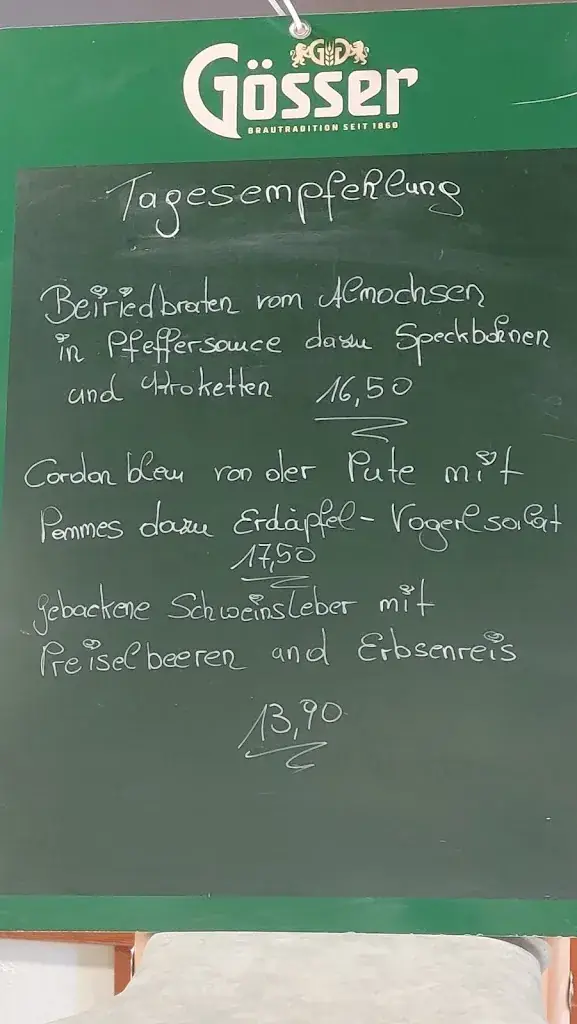 Gösser
BRAUTRADITION SEIT 1860
Tagesempfehlung
Beiriedbraten vom Almochsen
in Pfeffersauce dazu Speckbohnen
und Kroketten 16,50
Cordon bleu von der Pute mit
Pommes dazu Erdäpfel-Vogerlsalat
17,50
gebackene Schweinsleber mit
Preiselbeeren und Erbsenreis
13,90